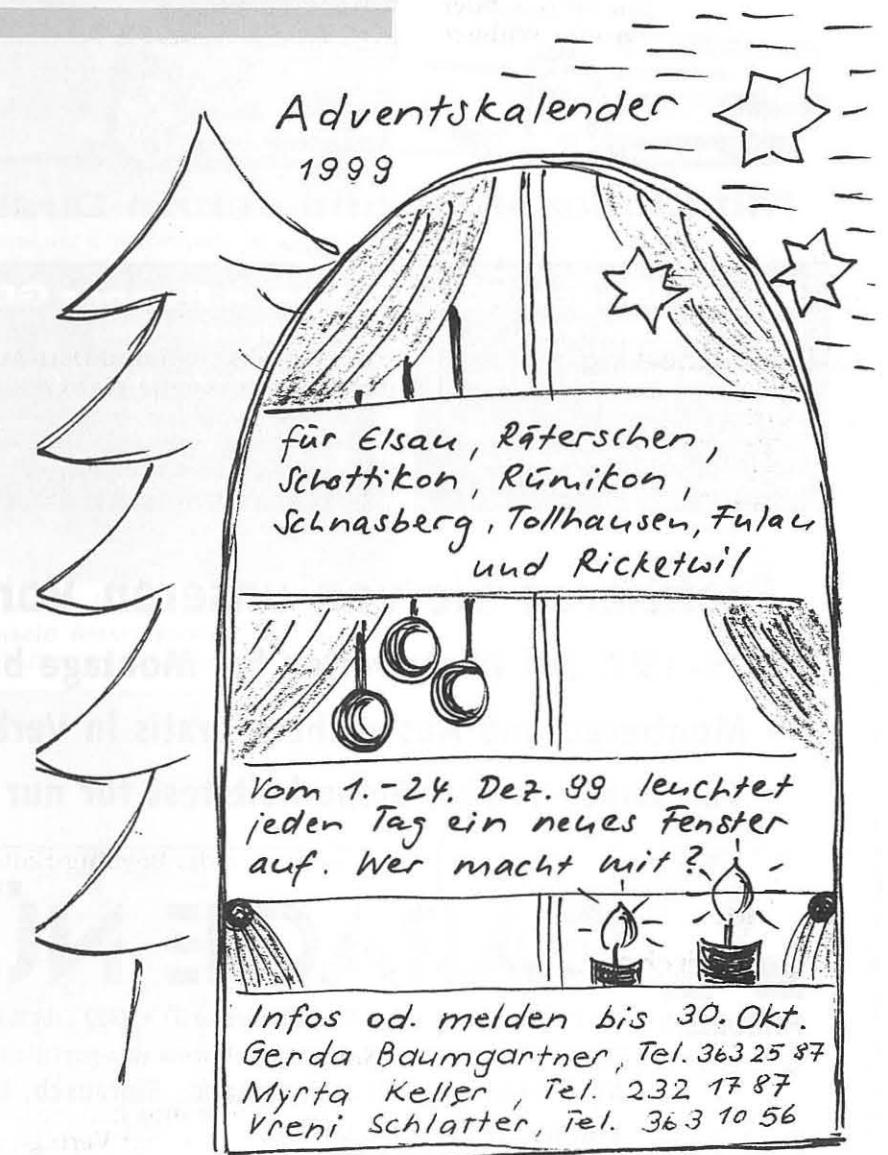 Adventskalender
1999
für Elsau, Räterschen,
Schottikon, Rümikon,
Schnasberg, Tollhausen, Fulau
und Ricketwil
Vom 1.-24. Dez. 99 leuchtet
jeden Tag ein neues Fenster
auf. Wer macht mit?
Infos od. melden bis 30. Okt.
Gerda Baumgartner, Tel. 363 25 87
Myrta Keller, Tel. 232 17 87
Vreni Schlatter, Tel. 363 10 56